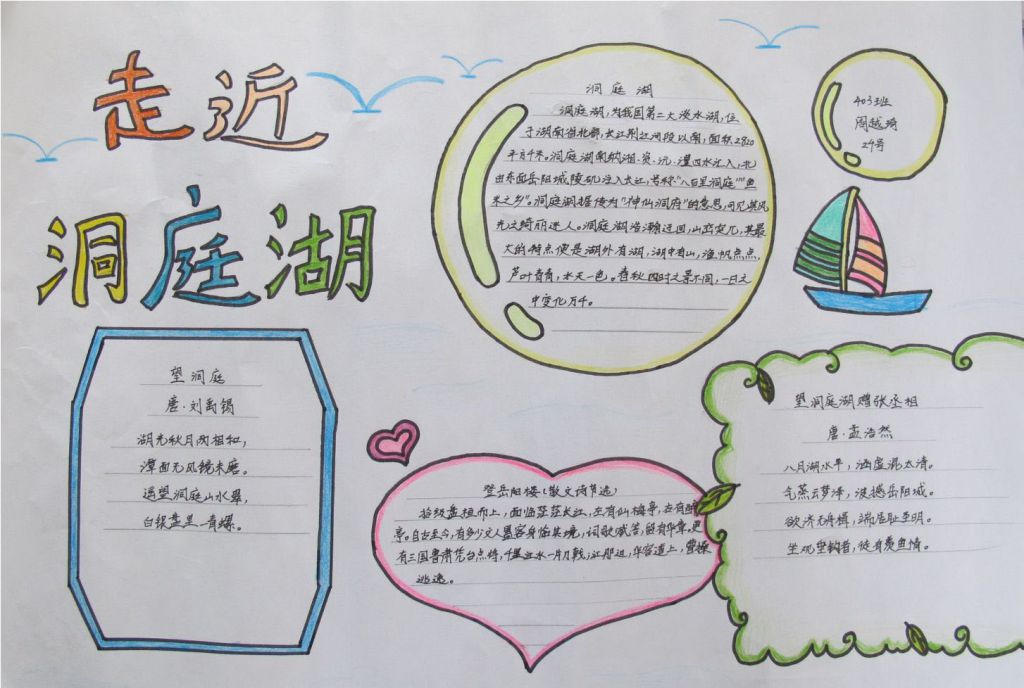 走近
洞庭湖
洞庭湖
洞庭湖,为我国第二大淡水湖,位
于湖南省北部,长江荆江河段以南,面积2820
平方千米。洞庭湖南纳湘、资、沅、澧四水汇入,北
由东面岳阳城陵矶注入长江,号称"八百里洞庭""鱼
米之乡"。洞庭湖据传为"神仙洞府"的意思,可见其风
光之绮丽迷人。洞庭湖浩瀚迂回,山峦突兀,其最
大的特点便是湖外有湖,湖中有山,渔帆点点,
芦叶青青,水天一色。春秋四时之景不同,一日之
中变化万千。
403班
周越琦
24号
望洞庭
唐·刘禹锡
湖光秋月两相和,
潭面无风镜未磨。
遥望洞庭山水翠,
白银盘里一青螺。
登岳阳楼(散文诗节选)
拾级盘桓而上,面临茫茫长江,左有仙梅亭,右有
亭。自古至今,有多少文人墨客身临其境,词歌赋苦,留有华章。更
有三国鲁肃凭台点将,千里江水一月
逃逸。
望洞庭湖赠张丞相
唐·孟浩然
八月湖水平,涵虚混太清。
气蒸云梦泽,波撼岳阳城。
欲济无舟楫,端居耻圣明。
坐观垂钓者,徒有羡鱼情。